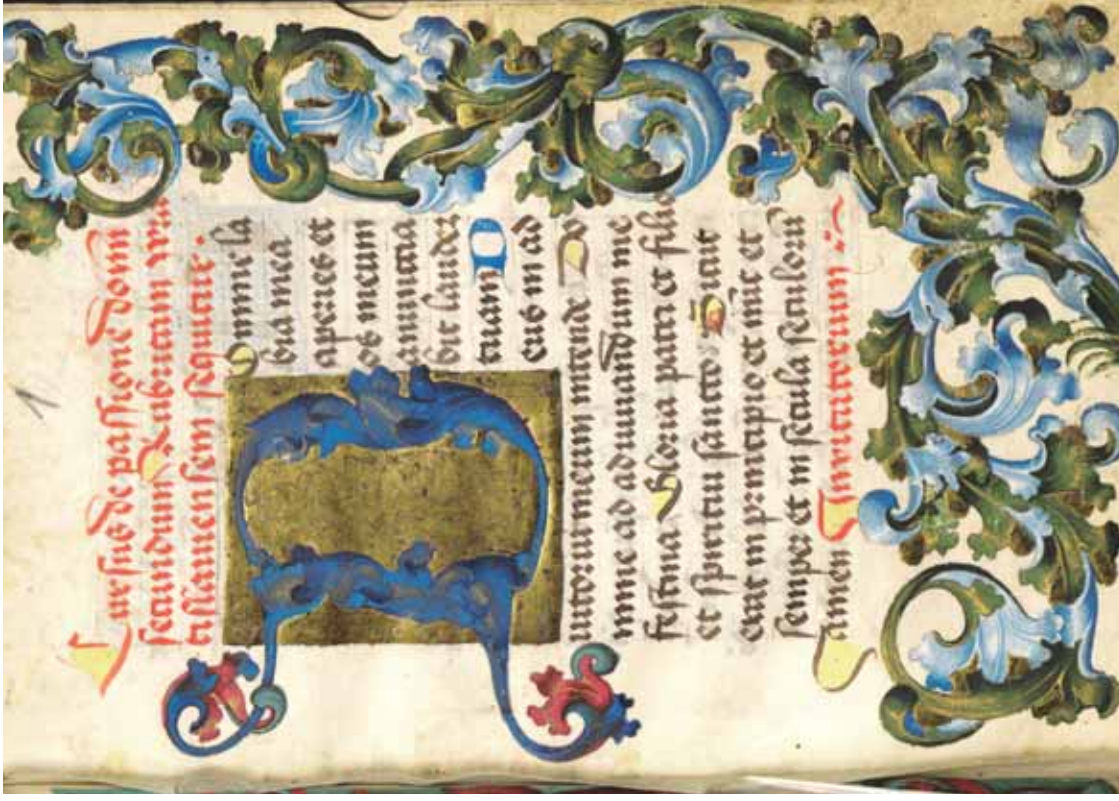 Cursus de passione dom̄
secundum Rubricam vra
tislauensem sequitur.
Domine la
bia mea
aperies et
os meum
annunctia
bit laudez
tuam D
eus in ad
iutorium meum intende Do
mine ad adiuuandum me
festina Gloria patri et filio
et spiritui sancto Sicut
erat in principio et nūc et
semper et in secula seculorū
amen Inuitatorium